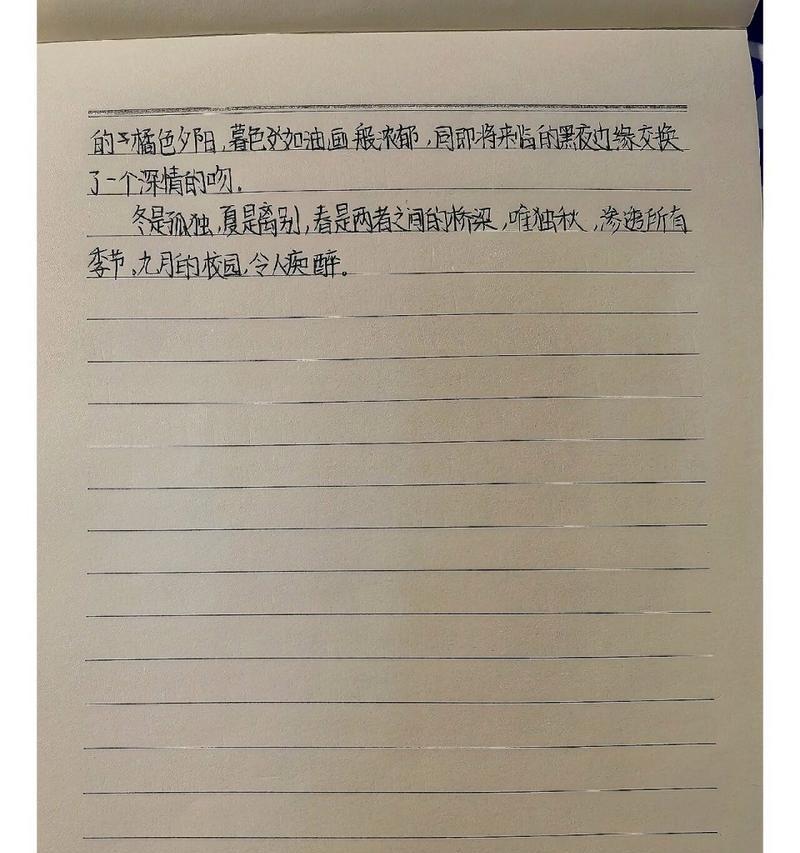 的橘色夕阳,暮色如油画般浓郁,同即将来临的黑夜边缘交换
了一个深情的吻。
冬是孤独,夏是离别,春是两者之间的桥梁,唯独秋,渗透所有
季节,九月的校园,令人痴醉。